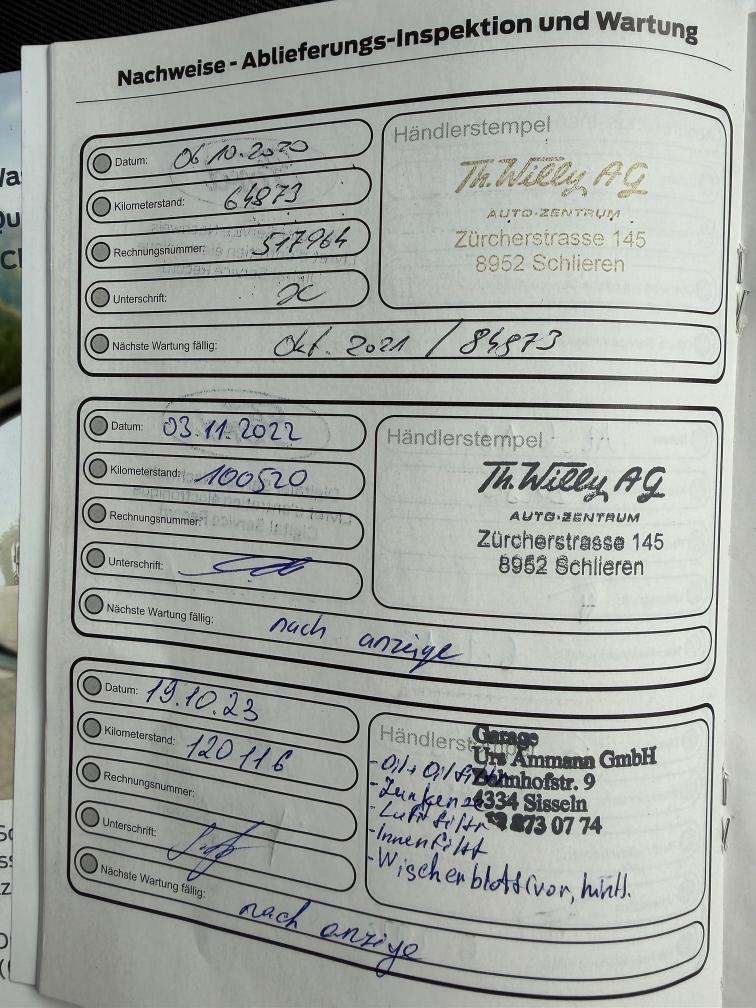 Nachweise - Ablieferungs-Inspektion und Wartung
Datum: 06 10.2020
Kilometerstand: 64873
Rechnungsnummer: 517964
Unterschrift:
Nächste Wartung fällig: Okt. 2021 / 84873
Händlerstempel
Th. Willy AG
AUTO-ZENTRUM
Zürcherstrasse 145
8952 Schlieren
Datum: 03.11.2022
Kilometerstand: 100520
Rechnungsnummer:
Unterschrift:
Nächste Wartung fällig: nach anzeige
Händlerstempel
Th. Willy AG
AUTO-ZENTRUM
Zürcherstrasse 145
8952 Schlieren
Datum: 19.10.23
Kilometerstand: 120116
Rechnungsnummer:
Unterschrift:
Nächste Wartung fällig: nach anzige
Händlerstempel
Garage
Urs Ammann GmbH
Bahnhofstr. 9
4334 Sisseln
873 07 74
- Oil + Oil filt
- Luft filtr
- Innenfilt
- Wischerblatt (vor, hintl.